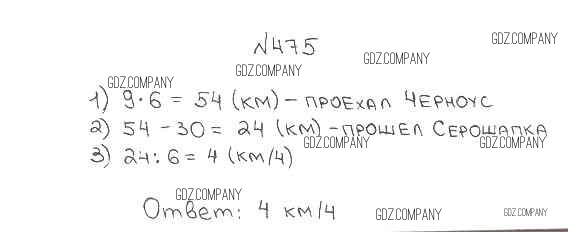 GDZ.COMPANY
№475
GDZ.COMPANY
GDZ.COMPANY
GDZ.COMPANY
1) 9·6 = 54 (км) – ПРОЕХАЛ ЧЕРНОУС
2) 54 – 30 = 24 (км) – ПРОШЕЛ СЕРОШАПКА
GDZ.COMPANY GDZ.COMPANY
3) 24 : 6 = 4 (км/ч)
GDZ.COMPANY
Ответ: 4 км/ч
GDZ.COMPANY GDZ.COMPANY